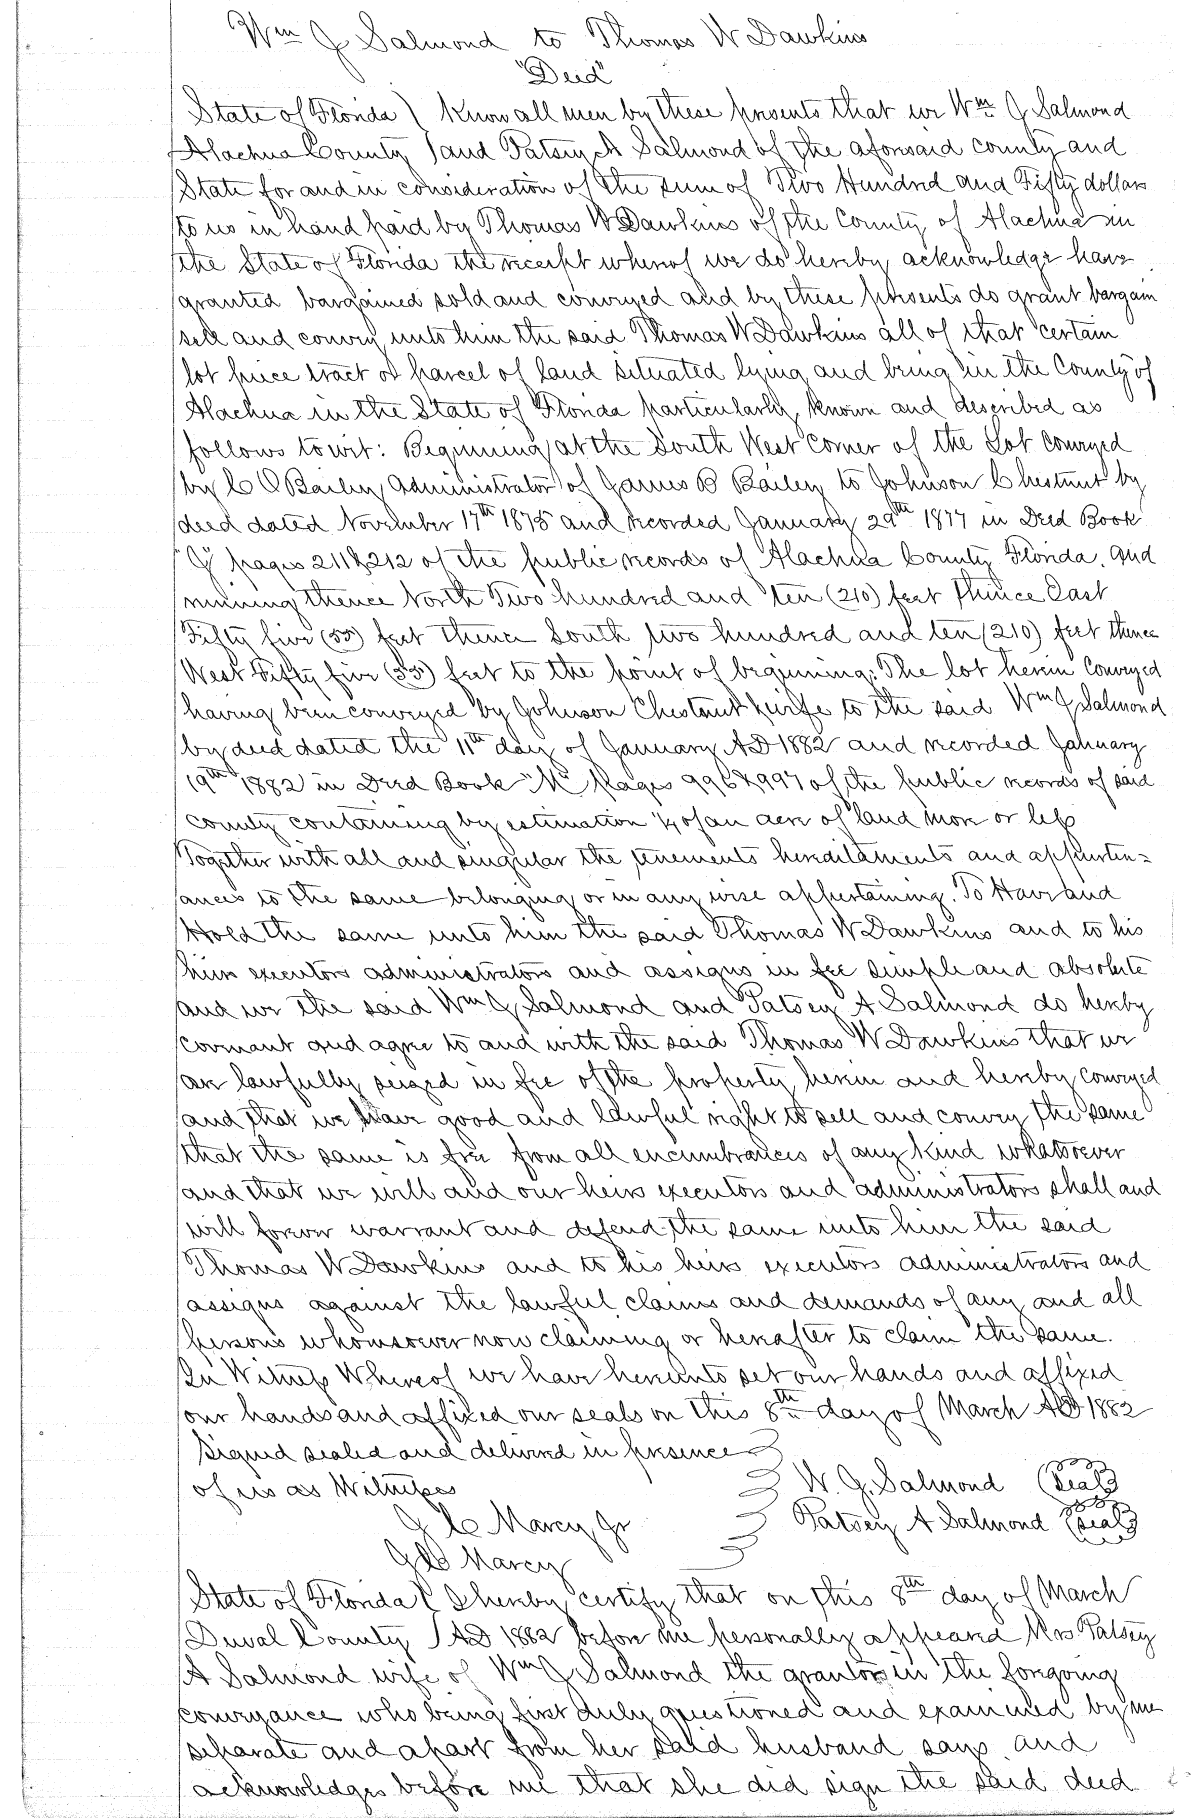 Wm J Salmond to Thomas W Dawkins
"Deed"
State of Florida ) Know all men by these presents that we Wm J Salmond
Alachua County ) and Patsey A Salmond of the aforesaid county and
State for and in consideration of the sum of Two Hundred and Fifty dollars
to us in hand paid by Thomas W Dawkins of the County of Alachua in
the State of Florida the receipt whereof we do hereby acknowledge have
granted bargained sold and conveyed and by these presents do grant bargain
sell and convey unto him the said Thomas W Dawkins all of that certain
lot piece tract or parcel of land situated lying and being in the County of
Alachua in the State of Florida particularly known and described as
follows to wit: Beginning at the South West Corner of the Lot conveyed
by C O Bailey Administrator of James B Bailey to Johnson Chestnut by
deed dated November 17th 1875 and recorded January 29th 1877 in Deed Book
pages 211 & 212 of the public records of Alachua County Florida. and
running thence North Two hundred and ten (210) feet thence East
Fifty five (55) feet thence South two hundred and ten (210) feet thence
West Fifty five (55) feet to the point of beginning: The lot herein conveyed
having been conveyed by Johnson Chestnut & wife to the said Wm J Salmond
by deed dated the 11th day of January AD 1882 and recorded January
19th 1882 in Deed Book "M" Pages 996 & 997 of the public records of said
county containing by estimation 1/4 of an acre of land more or less
Together with all and singular the tenements hereditaments and appurten=
ances to the same belonging or in any wise appertaining. To Have and
Hold the same unto him the said Thomas W Dawkins and to his
heirs executors administrators and assigns in fee simple and absolute
and we the said Wm J Salmond and Patsey A Salmond do hereby
covenant and agree to and with the said Thomas W Dawkins that we
are lawfully seized in fee of the property herein and hereby conveyed
and that we have good and lawful right to sell and convey the same
that the same is free from all encumbrances of any kind whatsoever
and that we will and our heirs executors and administrators shall and
will forever warrant and defend the same unto him the said
Thomas W Dawkins and to his heirs executors administrators and
assigns against the lawful claims and demands of any and all
persons whomsoever now claiming or hereafter to claim the same.
In Witness Whereof we have hereunto set our hands and affixed
our hands and affixed our seals on this 8th day of March AD 1882
Signed sealed and delivered in presence
of us as Witnesses
W. J. Salmond (Seal)
G C Marcy Jr
Patsey A Salmond (Seal)
Marcy
State of Florida ( I hereby certify that on this 8th day of March
Duval County ) AD 1882 before me personally appeared Mrs Patsey
A Salmond wife of Wm J Salmond the grantors in the foregoing
conveyance who being first duly questioned and examined by me
separate and apart from her said husband says and
acknowledges before me that she did sign the said deed